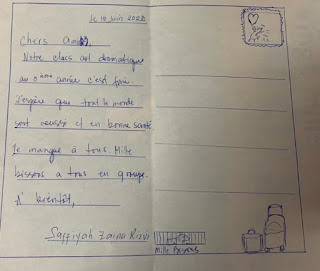 Le 10 Juin 2020
Chers Amis,
Notre class art dramatique
au 8ième année c'est fini.
J'espère que tout le monde
sont reussir et en bonne santé
Je manque à tous. Mille
bissous a tous en groupe.
A' bientôt,
Saffiyah Zaina Rizvi
Mille Bisous